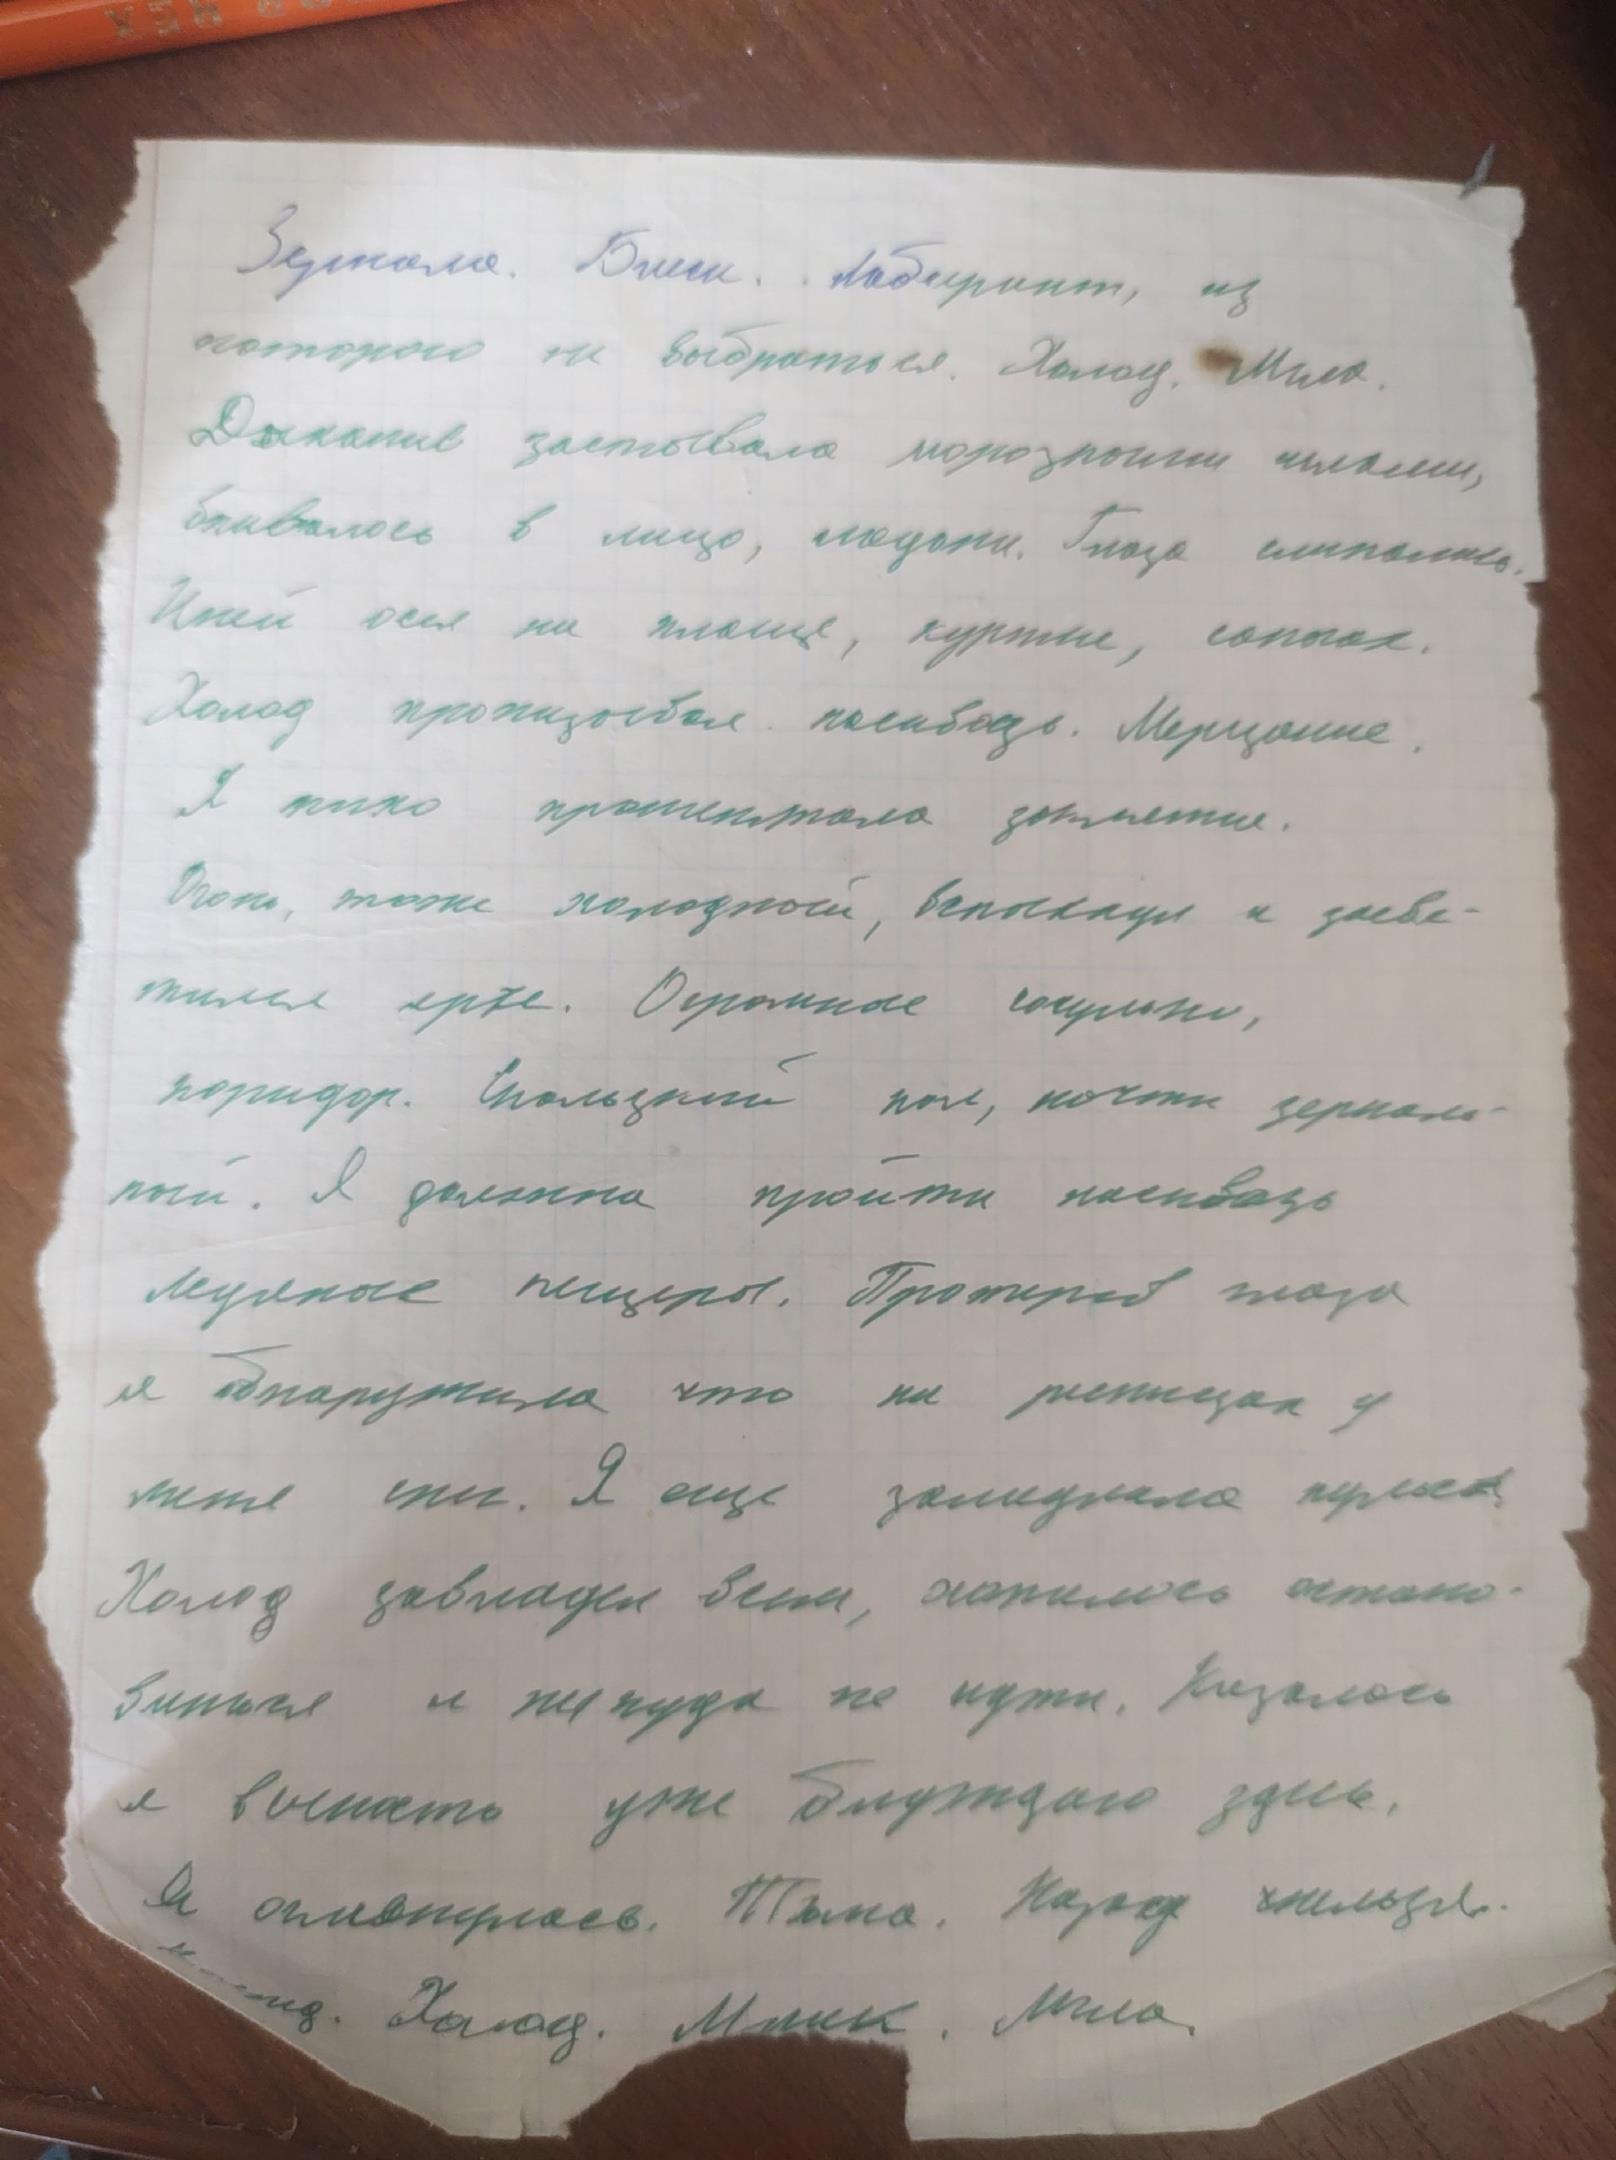 Зеркала. Блеск. Лабиринт, из
которого не выбраться. Холод. Мгла.
Дыхание застывало морозными иглами,
впивалось в лицо, ладони. Глаза слипались.
Иней осел на плаще, куртке, сапогах.
Холод пронизывал насквозь. Мерцание.
Я тихо прошептала заклятие.
Огонь, тоже холодный, вспыхнул и засве-
тился ярче. Огромные сосульки,
коридор. Скользкий пол, почти зеркаль-
ный. Я должна пройти насквозь
ледяные пещеры. Протерев глаза
я обнаружила что на ресницах у
меня снег. Я еще
Холод завладел всем, хотелось остано-
виться и никуда не идти. Казалось
я вечность уже блуждаю здесь.
Я оглянулась. Тьма. Назад нельзя.
Холод. Мгла.